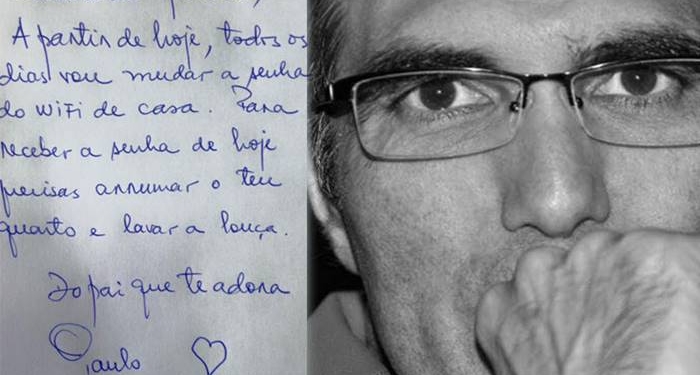 A partir de hoje, todos os
dias vou mudar a senha
do WiFi de casa. Para
receber a senha de hoje
precisas arrumar o teu
quarto e lavar a louça.
Do pai que te adora
Paulo